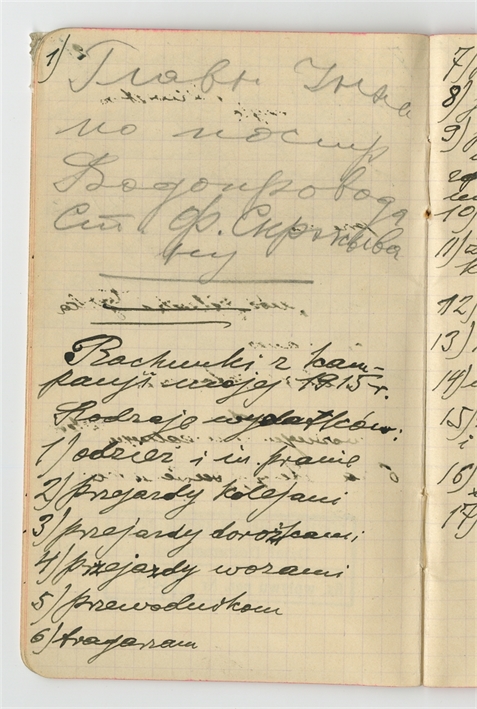 1)
Главн
по постр
Водопровода
ст. Ф. Скржива
ну
Rachunki z kam-
panji mojej 1915 r.
Rodzaje wydatków:
1) odzież i in pranie
2) przejazdy kolejami
3) przejazdy dorożkami
4) przejazdy wozami
5) przewodnikom
6) tragarzam
7)
8)
9)
10
11) z
12)
13)
14)
15)
i
16)
17)